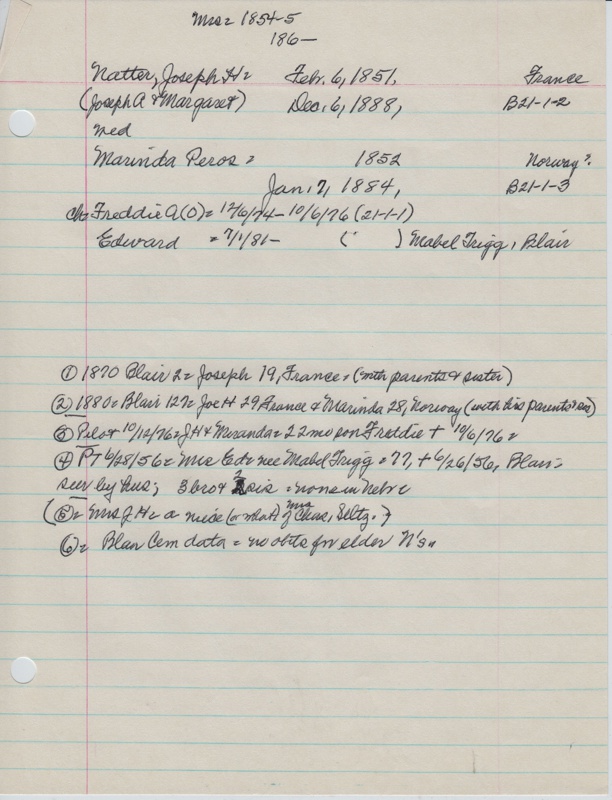 Mrs = 1854-5
186-
Natter, Joseph H = Feb. 6, 1851, France
(Joseph A & Margaret) Dec. 6, 1888, B21-1-2
med
Marinda Peros = 1852 Norway?
Jan. 7, 1884, B21-1-3
ch = Freddie A (O) = 12/6/74 - 10/6/76 (21-1-1)
Edward = 7/1/81 - ( ) Mabel Trigg, Blair
① 1870 Blair 2 = Joseph 19, France = (with parents & sister)
② 1880 = Blair 127 = Joe H 29 France & Marinda 28, Norway (with his parents & sis)
③ Pilot 10/12/76 = JH & Miranda = 22 mo son Freddie + 10/6/76 =
④ PT 6/28/56 = Mrs Ed = nee Mabel Trigg = 77, + 6/26/56, Blair =
surv by hus; 3 bro & 2 sis = none in Nebr =
(⑤ = Mrs J.H. = a niece (or what) of Mrs Chas. Seltz. ?)
⑥ = Blair Cem data = no obits for elder N's "